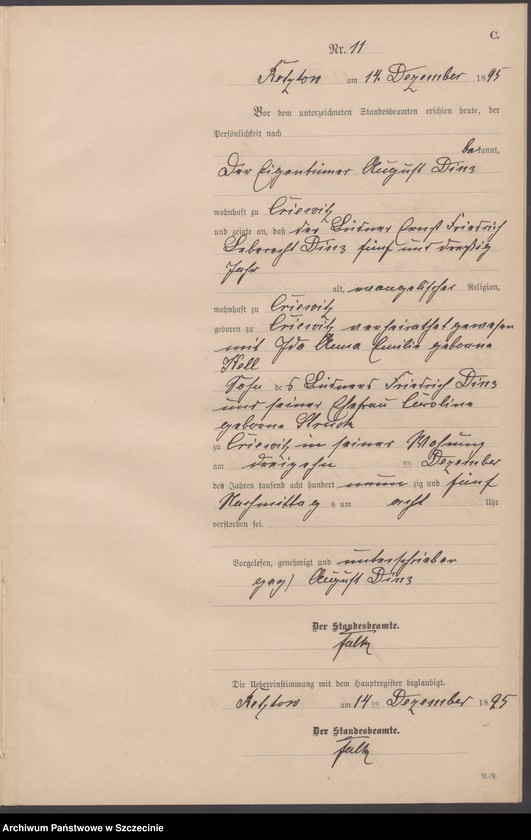 C.
Nr. 11
am 14. Dezember 1895
Vor dem unterzeichneten Standesbeamten erschien heute, der
Persönlichkeit nach
bekannt,
Der Eigentümer August Dinz
wohnhaft zu Criewitz
und zeigte an, daß der Büdner Ernst Friedrich
Leberecht Dinz fünf und dreißig
Jahr
alt, evangelischer Religion,
wohnhaft zu Criewitz
geboren zu Criewitz verheirathet gewesen
mit Ida Anna Emilie geborne
Kell
Sohn des Büdners Friedrich Dinz
und seiner Ehefrau Caroline
geborne Struck
zu Criewitz in seiner Wohnung
am dreizehn ten Dezember
des Jahres tausend acht hundert neun zig und fünf
Nachmittags um acht Uhr
verstorben sei.
Vorgelesen, genehmigt und unterschrieben
gez) August Dinz
Der Standesbeamte.
Falk
Die Uebereinstimmung mit dem Hauptregister beglaubigt.
am 14 ten Dezember 1895
Der Standesbeamte.
Falk
Archiwum Państwowe w Szczecinie